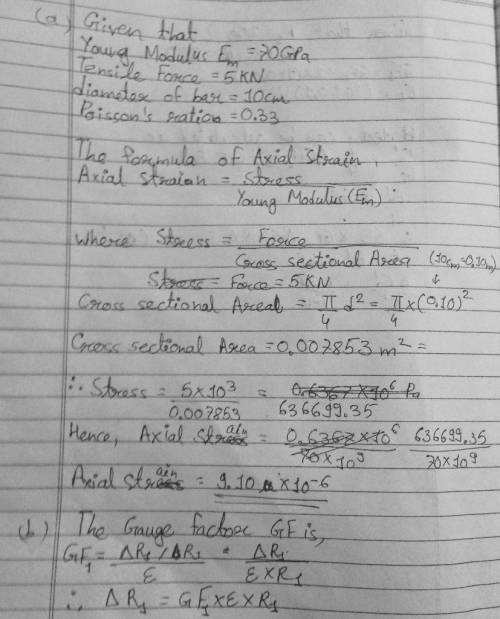 (a) Given that
Young Modulus Em = 70GPa
Tensile Force = 5KN
diameter of bar = 10cm
Poisson's ration = 0.33
The formula of Axial Strain,
Axial Straion = Stress
Young Modulus (Em)
where Stress = Force
Cross sectional Area (10cm = 0.10m)
Stress = Force = 5KN ↓
Cross sectional Areal = π/4 d² = π/4 × (0.10)²
Cross sectional Area = 0.007853 m² =
∴ Stress = 5×10³ / 0.007853 = 0.6367×10⁶ Pa
636699.35
Hence, Axial strain = 0.6367×10⁶ / 70×10⁹ 636699.35 / 70×10⁹
Axial strain = 9.10 ×10-6
(b) The Gauge factor GF is,
GF₁ = ΔR₁/ΔR₁ / ε = ΔR₁ / ε×R₁
∴ ΔR₁ = GF₁×ε×R₁